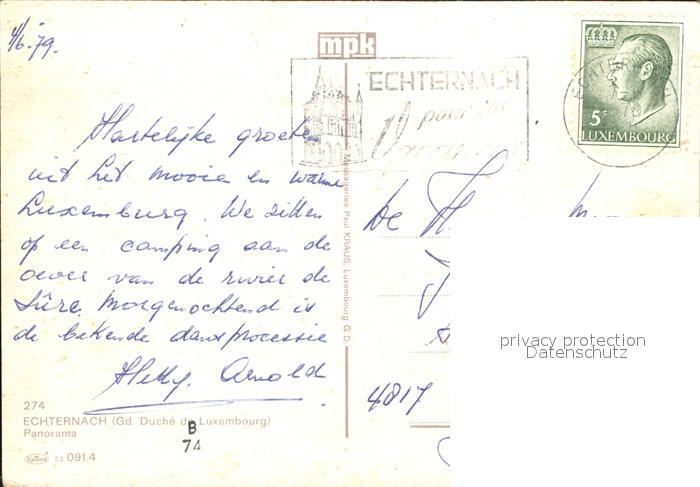 4/6.79.
mpk
ECHTERNACH
pour les
ECHTERNACH
5F
LUXEMBOURG
Hartelijke groeten
uit het mooie en warme
Luxemburg. We zitten
op een camping aan de
oever van de rivier de
Sûre. Morgenochtend is
de bekende dansprocessie
Hetty. Arnold
Messageries Paul KRAUS, Luxembourg G.D.
De H
4817
privacy protection
Datenschutz
274
ECHTERNACH (Gd. Duché de Luxembourg)
Panorama
B
74
52 091.4